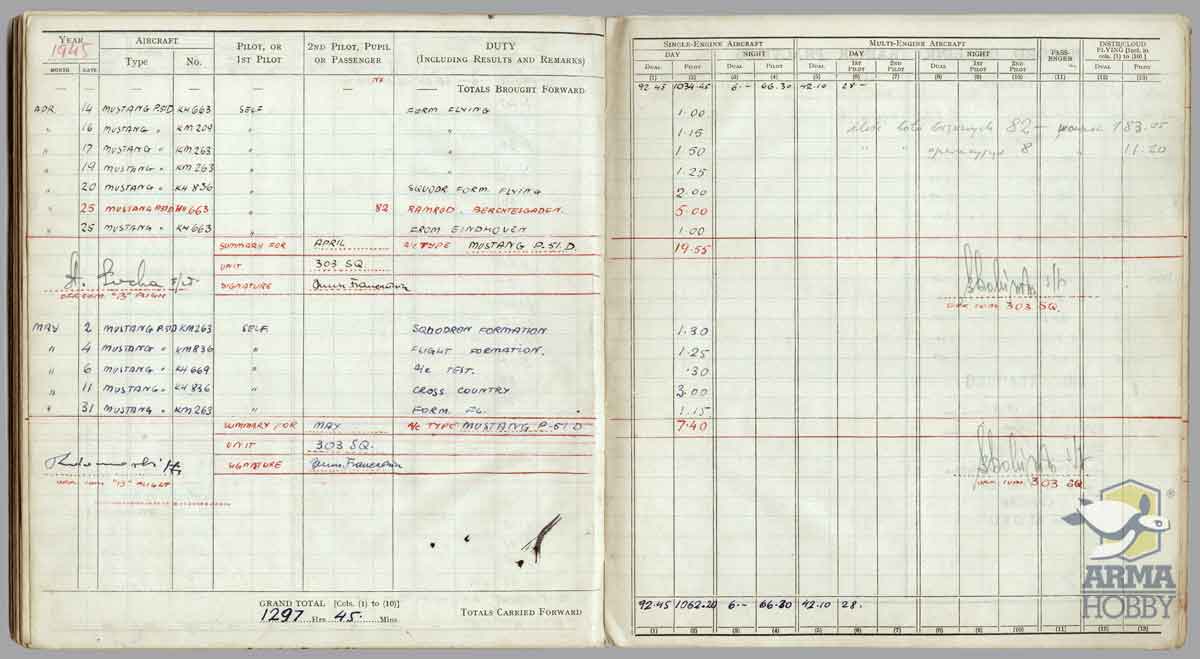 YEAR 1945 AIRCRAFT PILOT, OR 1ST PILOT 2ND PILOT, PUPIL OR PASSENGER DUTY (INCLUDING RESULTS AND REMARKS)
MONTH DATE Type No.
SINGLE-ENGINE AIRCRAFT MULTI-ENGINE AIRCRAFT PASSENGER INSTR/CLOUD FLYING [Incl. in cols. (1) to (10)]
DAY NIGHT DAY NIGHT
DUAL PILOT DUAL PILOT DUAL 1ST PILOT 2ND PILOT DUAL 1ST PILOT 2ND PILOT DUAL PILOT
(1) (2) (3) (4) (5) (6) (7) (8) (9) (10) (11) (12) (13)
— — — — — — — TOTALS BROUGHT FORWARD 92.45 1034.45 6.— 66.30 42.10 28—
APR 14 MUSTANG P.51D KH663 SELF FORM FLYING 1.00
" 16 MUSTANG " KM209 " " 1.15
" 17 MUSTANG " KM263 " " 1.50
" 19 MUSTANG " KM263 " " 1.25
" 20 MUSTANG " KH836 " SQUADR FORM. FLYING 2.00
" 25 MUSTANG P.51D KH663 " 82 RAMROD. BERCHTESGADEN. 5.00
" 25 MUSTANG " KH663 " FROM EINDHOVEN 1.00
82 — 183.05
" " 8 " 11.20
SUMMARY FOR APRIL A/C TYPE MUSTANG P-51.D 19.55
UNIT 303 SQ.
SIGNATURE
OFF. COM. "B" FLIGHT
303 SQ.
MAY 2 MUSTANG P.51D KM263 SELF SQUADRON FORMATION 1.30
" 4 MUSTANG " KM836 " FLIGHT FORMATION. 1.25
" 6 MUSTANG " KH669 " A/C TEST. .30
" 11 MUSTANG " KH836 " CROSS COUNTRY 3.00
" 31 MUSTANG " KM263 " FORM. FL. 1.15
SUMMARY FOR MAY A/C TYPE MUSTANG P-51.D 7.40
UNIT 303 SQ.
SIGNATURE
"B" FLIGHT
303 SQ.
GRAND TOTAL [Cols. (1) to (10)]
1297 Hrs 45 Mins
TOTALS CARRIED FORWARD 92.45 1062.20 6.— 66.30 42.10 28.
(1) (2) (3) (4) (5) (6) (7) (8) (9) (10) (11) (12) (13)
ARMA
HOBBY
®